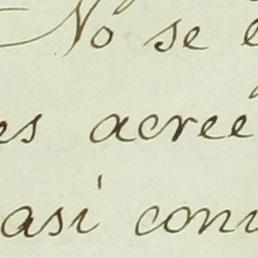 No se
es acree
asi conv